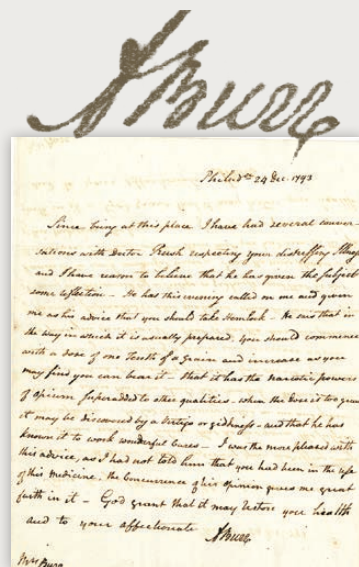 A Burr
Philad.ᵃ 24 Dec. 1793
Since being at this place I have had several conver-
sations with Doctor Rush respecting your distressing Illness
and I have reason to believe that he has given the subject
some reflection – He has this evening called on me and given
me as his advice that you should take Hemlock – He says that in
the way in which it is usually prepared, you should commence
with a dose of one tenth of a grain and increase as you
may find you can bear it – that it has the narcotic powers
of opium superadded to other qualities – when the Dose is too great
it may be discovered by a vertigo or giddiness – and that he has
known it to work wonderful cures – I was the more pleased with
this advice, as I had not told him that you had been in the use
of this medicine, the Concurrence of his opinion gives me great
faith in it – God grant that it may restore your health
and to your affectionate
A Burr
Mrs Burr